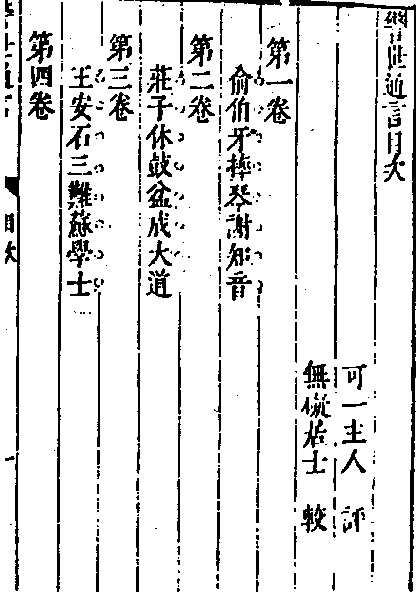 警世通言目次
可一主人 評
無礙居士 較
第一卷
俞伯牙摔琴謝知音
第二卷
莊子休鼓盆成大道
第三卷
王安石三難蘇學士
第四卷
目次
一